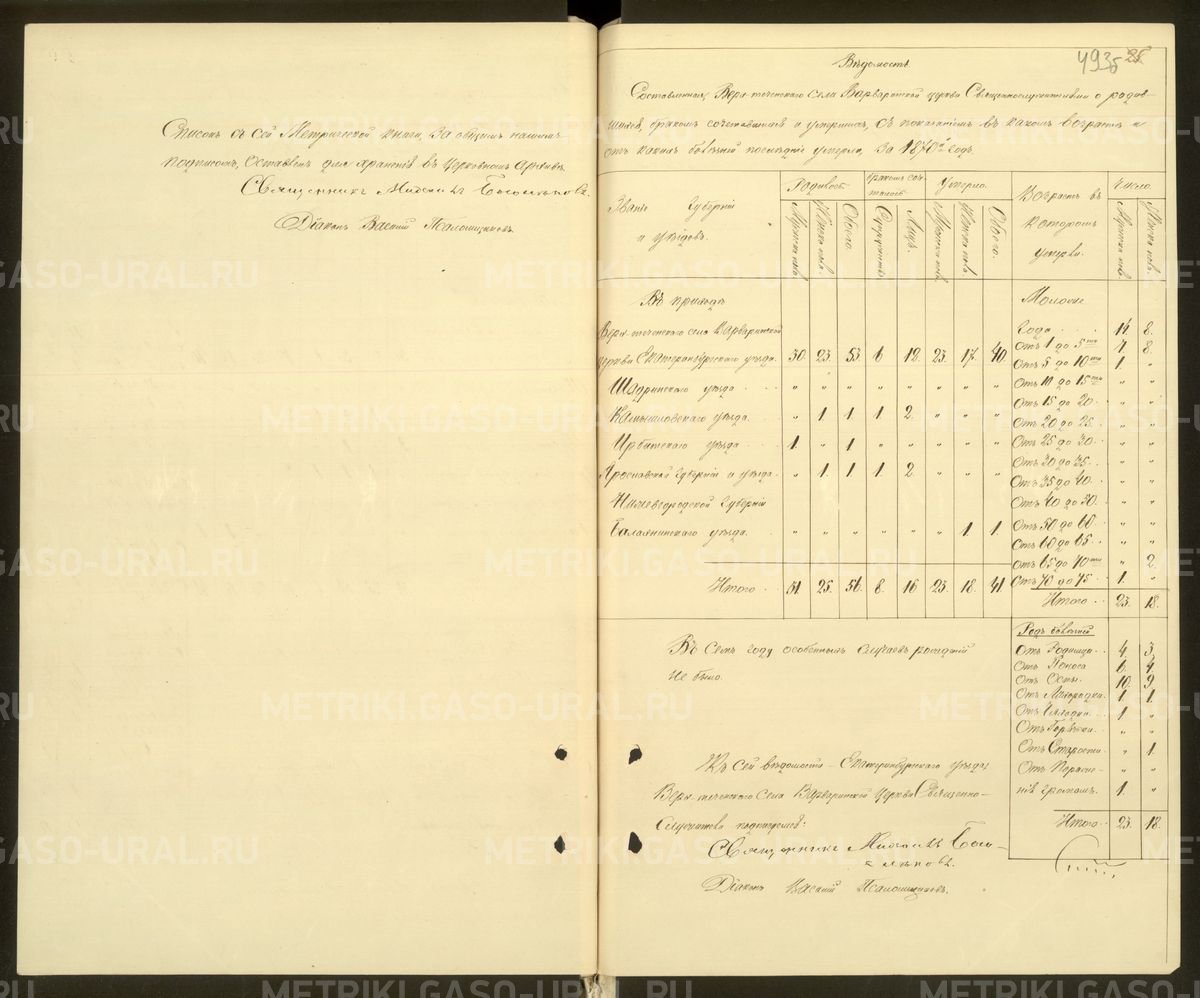 Списокъ съ сей Метрической книги, за общимъ нашимъ
подписомъ, оставленъ для храненія въ церковномъ Архивѣ.
Священникъ
Діаконъ Василій Псаломщиковъ.
493б 25
Вѣдомость
Составленная Верх-теченскаго села Варваринской церкви Священнослужителями о родив-
шихся, бракомъ сочетавшихся и умершихъ, съ показаніемъ въ какомъ возрастѣ и
отъ какихъ болѣзней послѣдніе умерли, за 1870й годъ.
Званіе Губерній и уѣздовъ. Родивост. бракомъ соч- талось Умерло. Возрастъ въ которомъ умерли. Число
Мужска пола. Женска пола. Обоего. Супружествъ Лицъ. Мужска пола. Женска пола. Обоего. Мужска пола. Женска пола.
Въ приходѣ
Верх-теченскаго села Варваринской
церкви Екатеринбургскаго уѣзда. 30. 23. 53. 6 12. 23. 17. 40.
Шадринскаго уѣзда " " " " " " " "
Камышловскаго уѣзда. " 1 1 1 2. " " "
Ирбитскаго уѣзда 1. " 1 " " " " "
Ярославской Губерніи и уѣзда. " 1 1 1 2. " " "
Нижегородской Губерніи
Балахнинскаго уѣзда. " " " " " " 1 1.
Итого 31. 25. 56. 8. 16 23. 18. 41.
Моложе
Года 14. 8.
Отъ 1 до 5ти 7. 8.
Отъ 5 до 10ти 1. "
Отъ 10 до 15ти " "
Отъ 15 до 20. " "
Отъ 20 до 25. " "
Отъ 25 до 30. " "
Отъ 30 до 35. " "
Отъ 35 до 40. " "
Отъ 40 до 50. " "
Отъ 50 до 60. " "
Отъ 60 до 65. " "
Отъ 65 до 70ти " 2.
Отъ 70 до 75. 1. "
Итого 23. 18.
Въ семъ году особенныхъ случаевъ рожденій
не было.
Къ сей вѣдомости Екатеринбургскаго уѣзда,
Верх-теченскаго села Варваринской Церкви Священно-
Служители подписуемся:
Священникъ
Діаконъ Василій Псаломщиковъ.
Родъ болѣзней
Отъ Родимца 4. 3.
Отъ Поноса 6. 4.
Отъ Оспы. 10. 9
Отъ Лихорадки. 1. 1.
Отъ 1. "
Отъ Горячки. " "
Отъ Старости " 1.
Отъ " "
1. "
Итого 23. 18.
METRIKI.GASO-URAL.RU